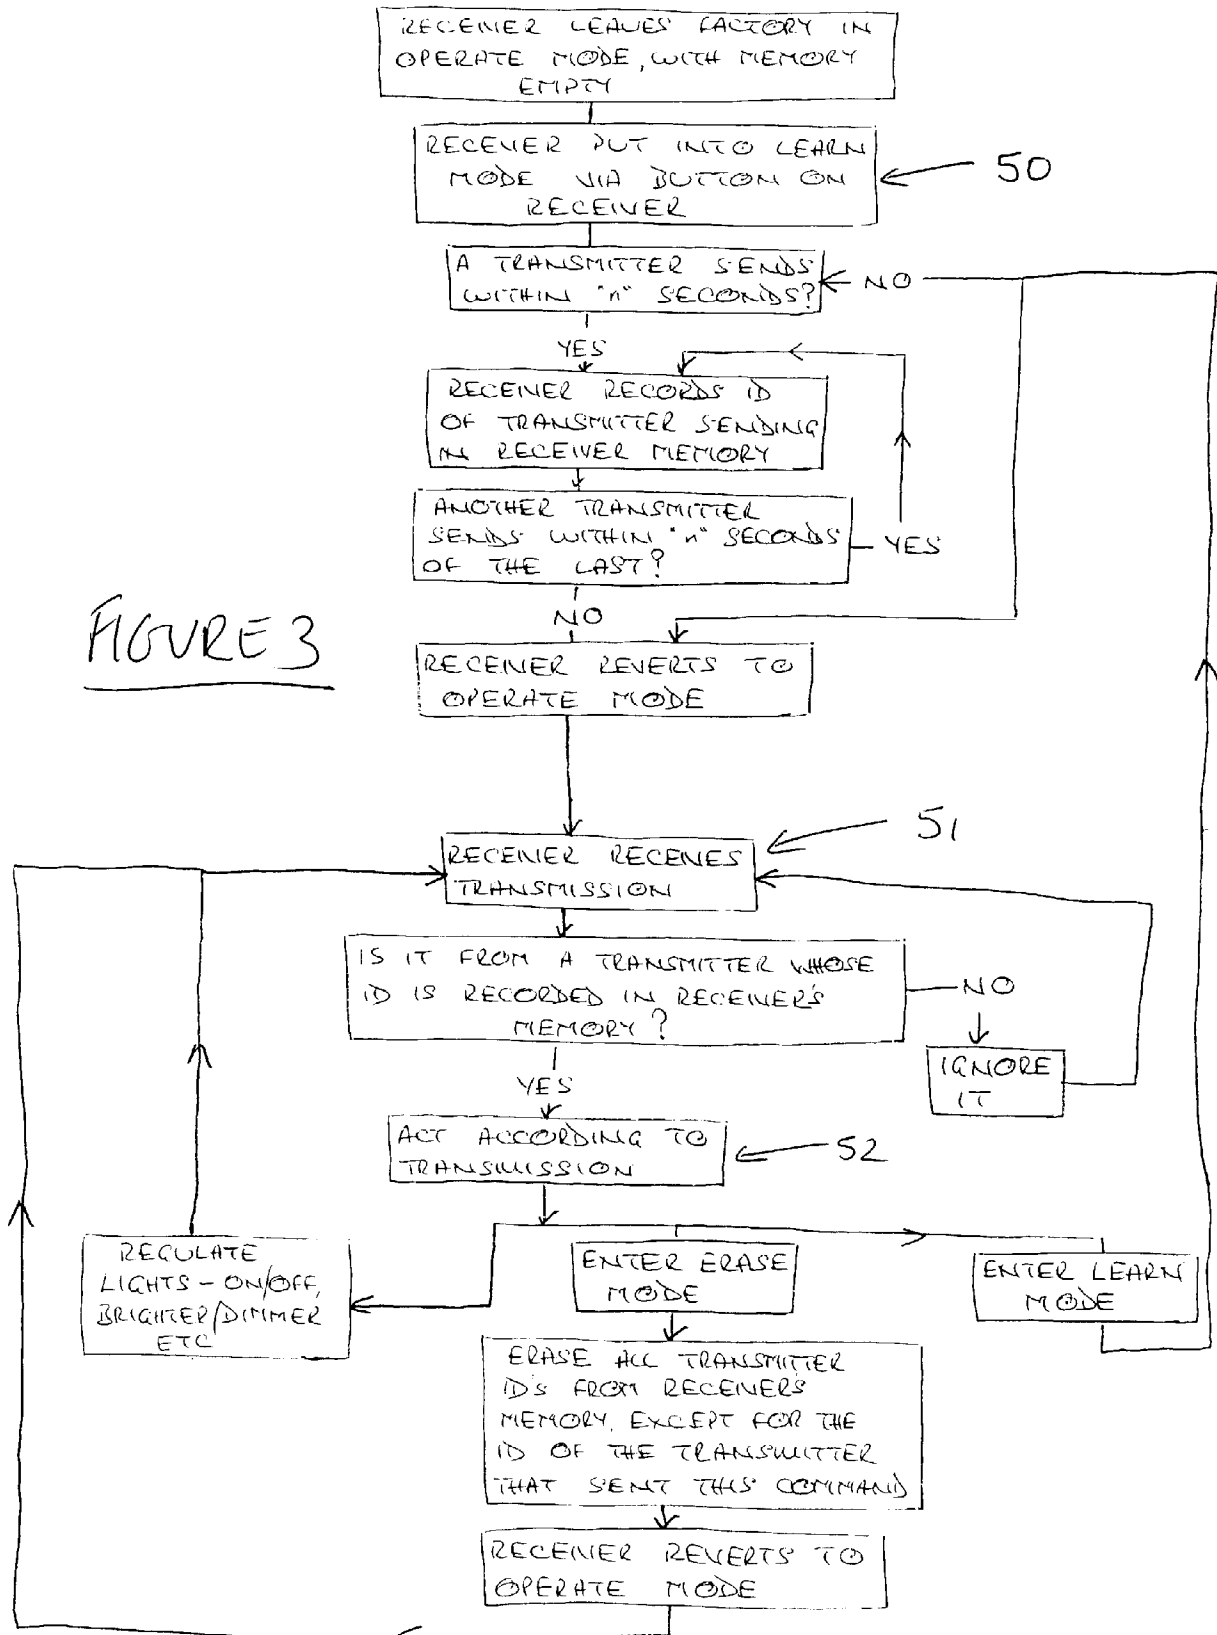 RECEIVER LEAVES FACTORY IN
OPERATE MODE, WITH MEMORY
EMPTY
RECEIVER PUT INTO LEARN
MODE VIA BUTTON ON
RECEIVER
50
A TRANSMITTER SENDS
WITHIN "n" SECONDS?
NO
YES
RECEIVER RECORDS ID
OF TRANSMITTER SENDING
IN RECEIVER MEMORY
ANOTHER TRANSMITTER
SENDS WITHIN "n" SECONDS
OF THE LAST?
YES
NO
FIGURE 3
RECEIVER REVERTS TO
OPERATE MODE
51
RECEIVER RECEIVES
TRANSMISSION
IS IT FROM A TRANSMITTER WHOSE
ID IS RECORDED IN RECEIVER'S
MEMORY?
NO
IGNORE
IT
YES
ACT ACCORDING TO
TRANSMISSION
52
REGULATE
LIGHTS - ON/OFF,
BRIGHTER/DIMMER
ETC
ENTER ERASE
MODE
ENTER LEARN
MODE
ERASE ALL TRANSMITTER
ID'S FROM RECEIVER'S
MEMORY, EXCEPT FOR THE
ID OF THE TRANSMITTER
THAT SENT THIS COMMAND
RECEIVER REVERTS TO
OPERATE MODE